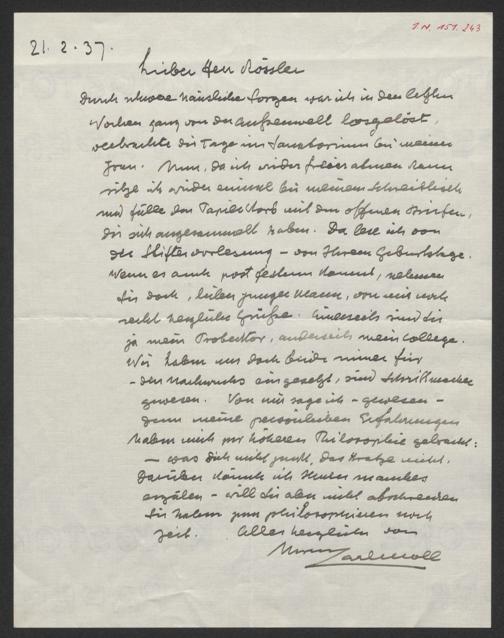 J.N. 151.243
21.2.37.
Lieber Herr Rössler
Durch schwere häusliche Sorgen war ich in den letzten
Wochen ganz von der Außenwelt losgelöst,
verbrachte die Tage im Sanatorium bei meiner
Frau. Nun, da ich wieder freier atmen kann
sitze ich wieder einmal bei meinem Schreibtisch
und fülle den Papierkorb mit den offenen Briefen,
die sich angesammelt haben. Da lese ich von
der Stiftervorlesung – von Ihrem Geburtstage.
Wenn es auch post festum kommt, nehmen
Sie doch, lieber junger Mann, von mir noch
recht herzliche Grüße. Einderseits sind Sie
ja mein Protektor, anderseits mein College.
Wir haben uns doch beide immer für
– den Nachwuchs eingesetzt, sind Schrittmacher
gewesen. Von mir sage ich – gewesen –
denn meine persönlichen Erfahrungen
haben mich zur höheren Philosophie gebracht:
– was Dich nicht juckt, das kratze nicht.
Darüber könnte ich Ihnen manches
erzälen – will Sie aber nicht abschrecken
Sie haben zum philosophieren noch
Zeit. Alles herzliche von
Ihrem Carl Moll